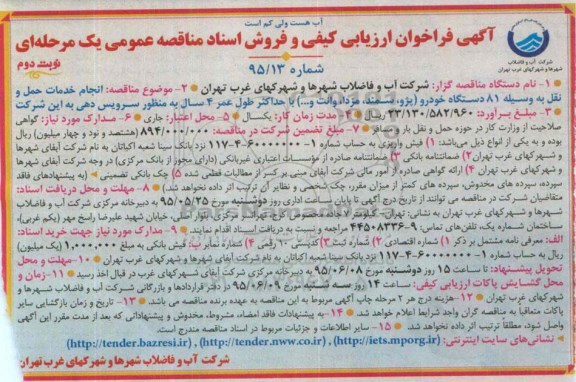 آب هست ولی کم است
آگهی فراخوان ارزیابی کیفی و فروش اسناد مناقصه عمومی یک مرحله‌ای
شماره ۹۵/۱۳
نوبت دوم
شرکت آب و فاضلاب
شهرها و شهرکهای غرب تهران
۱- نام دستگاه مناقصه گزار: شرکت آب و فاضلاب شهرها و شهرکهای غرب تهران ۲- موضوع مناقصه: انجام خدمات حمل و
نقل به وسیله ۸۱ دستگاه خودرو (پژو، سمند، مزدا، وانت و...) با حداکثر طول عمر ۴ سال به منظور سرویس دهی به این شرکت
۳- مبلغ برآورد: ۲۳/۱۳۰/۵۸۲/۹۶۰ ریال ۴- مدت زمان کار: یکسال ۵- محل اعتبار: جاری ۶- مدارک مورد نیاز: گواهی
صلاحیت از وزارت کار در حوزه حمل و نقل بار و مسافر ۷- مبلغ تضمین شرکت در مناقصه: ۸۹۴/۰۰۰/۰۰۰ (هشتصد و نود و چهار میلیون) ریال
بوده و به یکی از انواع ذیل می‌باشد: ۱) فیش واریزی به حساب شماره ۱-۶۰۰۰۰۰۰-۴-۱۱۷ نزد بانک سینا شعبه اکباتان به نام شرکت آبفای شهرها
و شهرکهای غرب تهران ۲) ضمانتنامه بانکی ۳) ضمانتنامه صادره از مؤسسات اعتباری غیربانکی (دارای مجوز از بانک مرکزی) در وجه شرکت آبفای شهرها
و شهرکهای غرب تهران ۴) ارائه گواهی صادره از امور مالی شرکت آبفای مبنی بر کسر از مطالبات قطعی شده ۵) چک بانکی تضمینی (به پیشنهادهای فاقد
سپرده، سپرده های مخدوش، سپرده های کمتر از میزان مقرر، چک شخصی و نظایر آن ترتیب اثر داده نخواهد شد.) ۸- مهلت و محل دریافت اسناد:
متقاضیان شرکت در مناقصه می توانند از تاریخ درج آگهی تا پایان ساعت اداری روز دوشنبه مورخ ۹۵/۰۵/۲۵ به دبیرخانه مرکزی شرکت آب و فاضلاب
شهرها و شهرکهای غرب تهران به نشانی: تهران، کیلومتر ۵ جاده مخصوص تهران کرج، بلوار علی، خیابان شهید علیرضا راسخ مهر (یکم غربی)،
ساختمان شماره یک، تلفن‌های تماس: ۹-۴۴۵۰۸۳۳۶ مراجعه و نسبت به دریافت اسناد اقدام نمایند. ۹- مدارک مورد نیاز جهت خرید اسناد:
الف: معرفی نامه مشتمل بر ذکر ۱) شماره اقتصادی ۲) شماره ثبت ۳) کدپستی ۱۰ رقمی ۴) شماره نمابر ب: فیش بانکی به مبلغ ۱,۰۰۰,۰۰۰ (یک میلیون)
ریال به حساب شماره ۱-۶۰۰۰۰۰۰-۴-۱۱۷ نزد بانک سینا شعبه اکباتان به نام شرکت آبفای شهرها و شهرکهای غرب تهران ۱۰- مهلت و محل
تحویل پیشنهاد: تا ساعت ۱۵ روز دوشنبه مورخ ۹۵/۰۶/۰۸ به دبیرخانه مرکزی شرکت آبفای شهرها و شهرکهای غرب در قبال اخذ رسید ۱۱- زمان و
محل گشایش پاکات ارزیابی کیفی: ساعت ۱۴ روز سه شنبه مورخ ۹۵/۰۶/۰۹ در دفتر قراردادها و بازرگانی شرکت آب و فاضلاب شهرها و
شهرکهای غرب تهران ۱۲- هزینه درج هر ۲ مرحله چاپ آگهی مربوط به این مناقصه به عهده برنده مناقصه می باشد. ۱۳- تاریخ و زمان بازگشایی سایر
پاکات متعاقبا به مناقصه گران واجد شرایط اعلام خواهد شد. ۱۴- به پیشنهادات فاقد امضاء، مشروط، مخدوش و پیشنهاداتی که بعد از مدت مقرر این آگهی
واصل شود، مطلقاً ترتیب اثر داده نخواهد شد. ۱۵- سایر اطلاعات و جزئیات مربوط در اسناد مناقصه مندرج است.
نشانی‌های سایت اینترنتی: (http://iets.mporg.ir) ، (http://tender.nww.co.ir) ، (http://tender.bazresi.ir)
شرکت آب و فاضلاب شهرها و شهرکهای غرب تهران